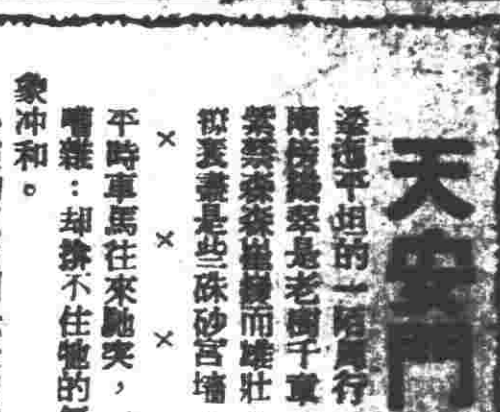 天安門
逶迤平坦的一陌行
兩傍翠是老樹千重
紫禁森森而雄壯
盡是些硃砂宮墻
× × ×
平時車馬往來馳突，
嘈雜：却不住牠的
象冲和。